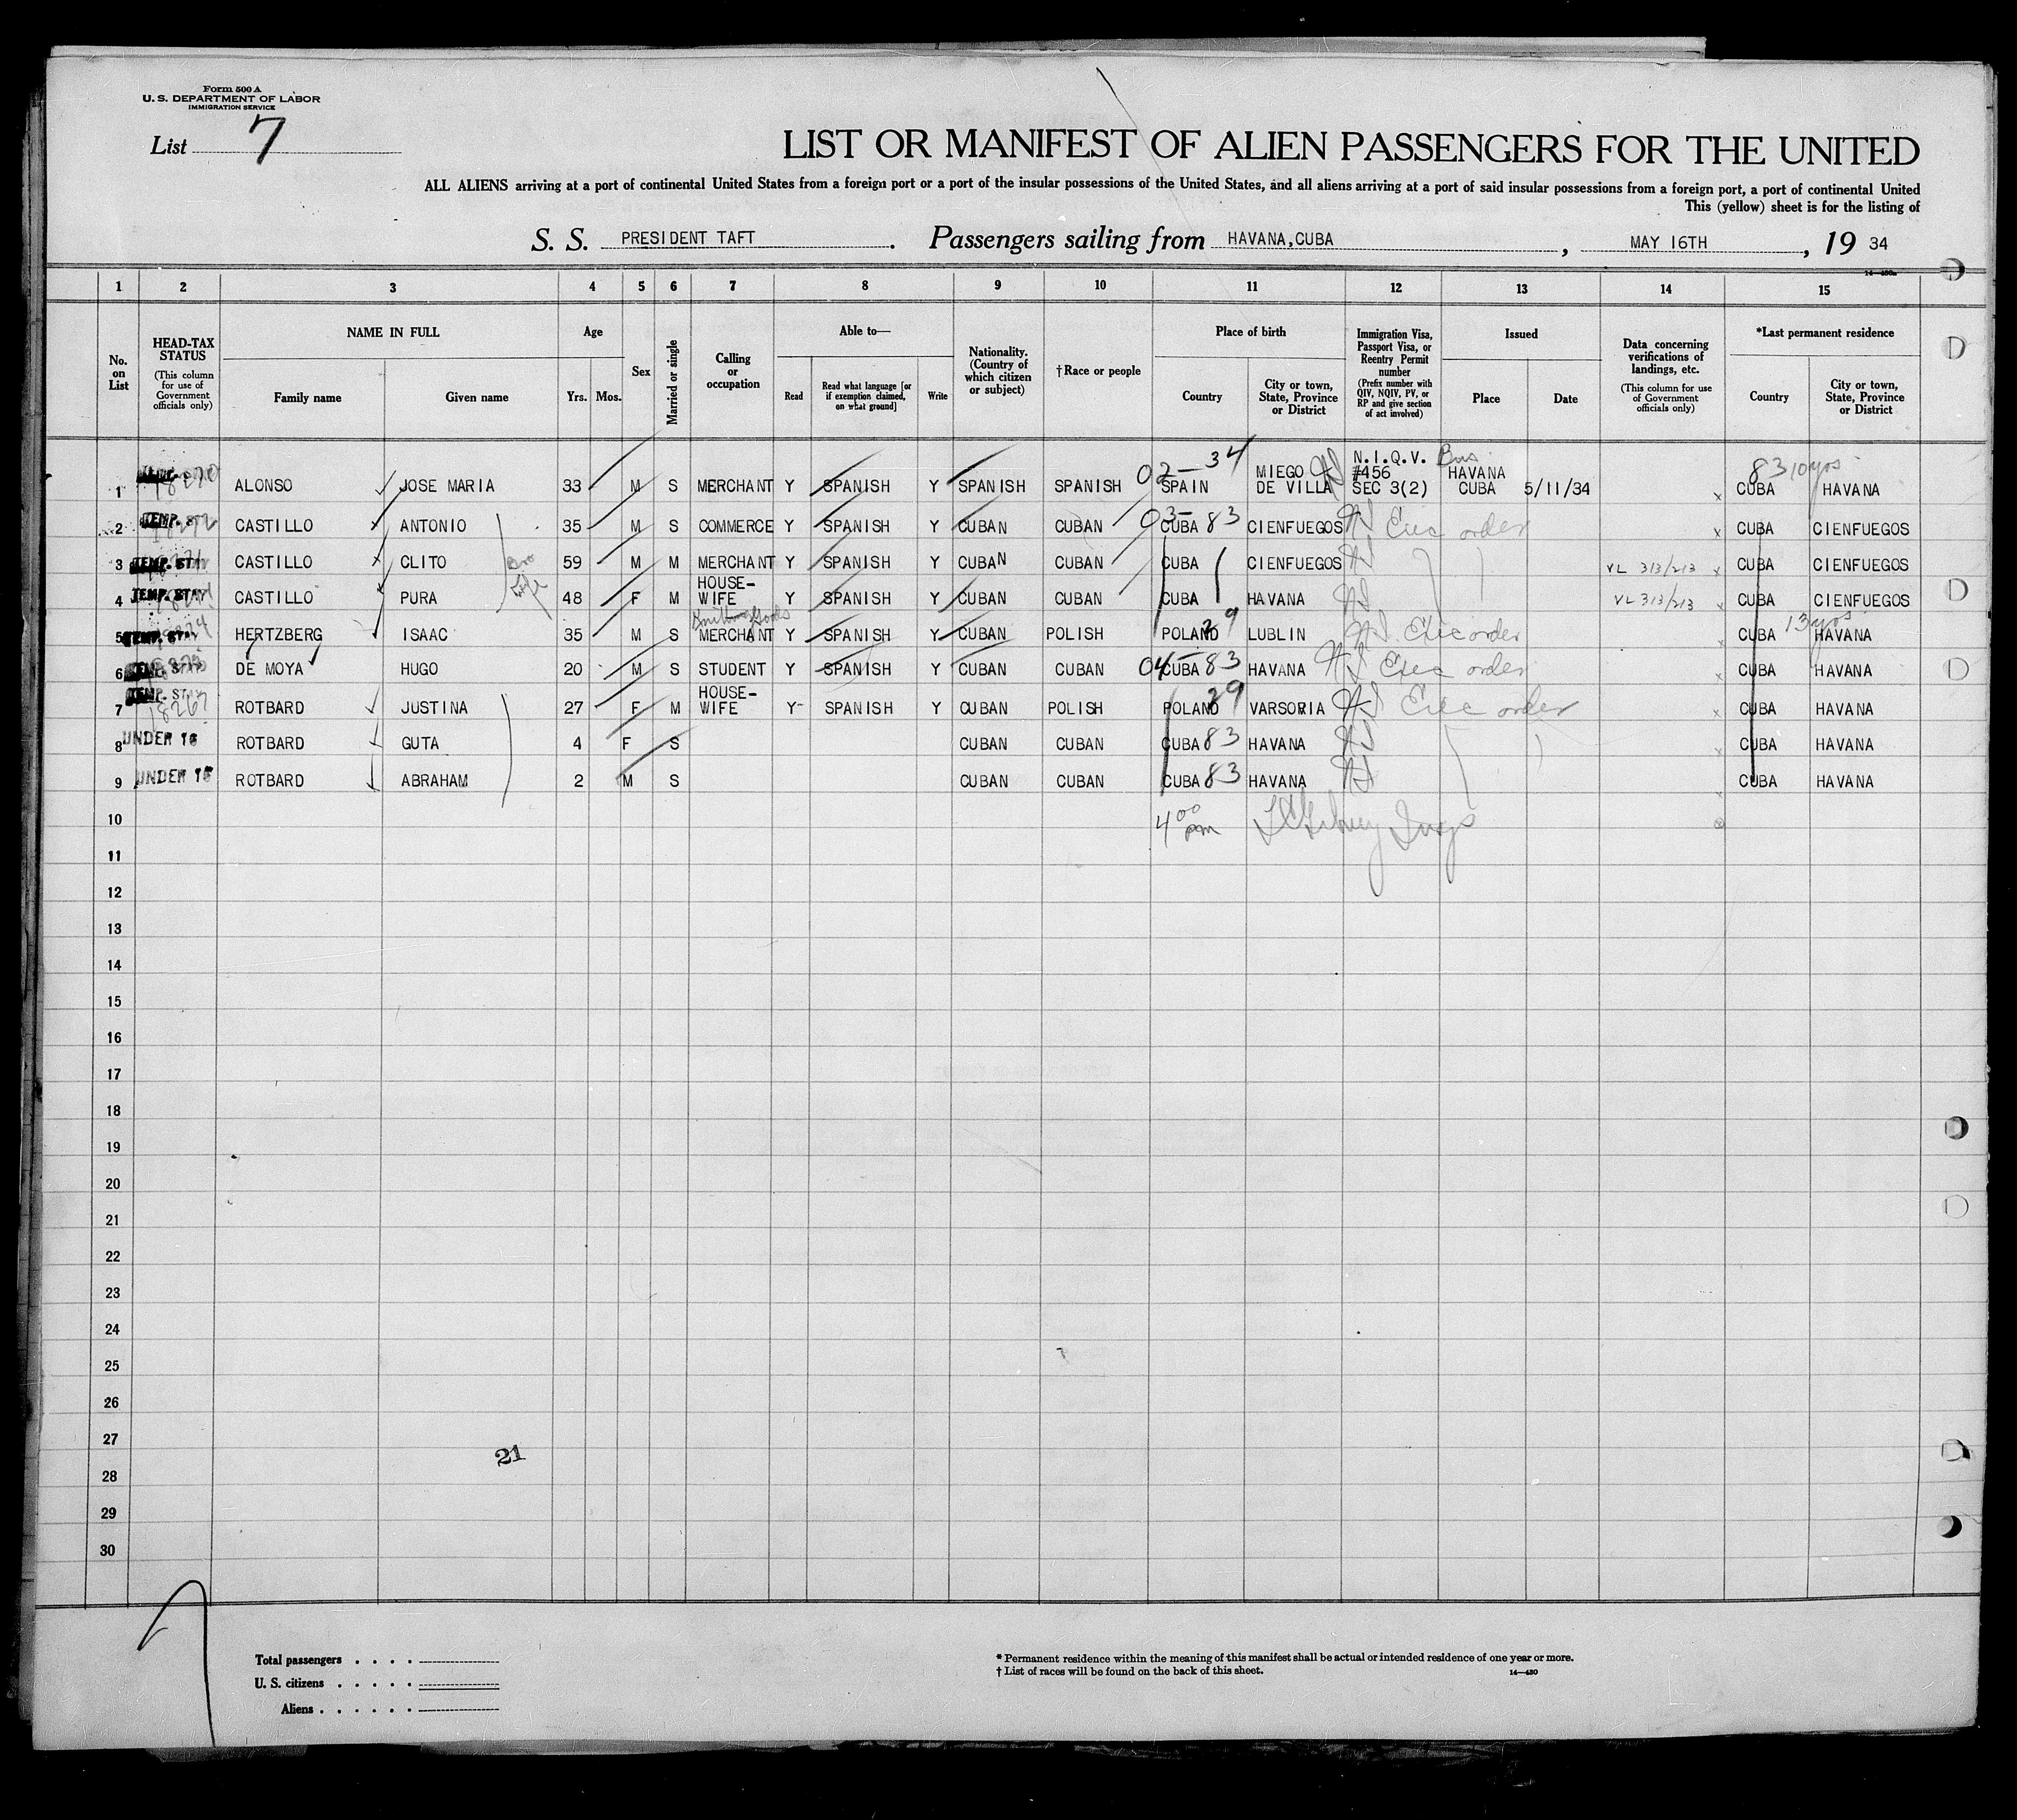 Form 500 A
U. S. DEPARTMENT OF LABOR
IMMIGRATION SERVICE
List 7
LIST OR MANIFEST OF ALIEN PASSENGERS FOR THE UNITED
ALL ALIENS arriving at a port of continental United States from a foreign port or a port of the insular possessions of the United States, and all aliens arriving at a port of said insular possessions from a foreign port, a port of continental United
This (yellow) sheet is for the listing of
S. S. PRESIDENT TAFT . Passengers sailing from HAVANA,CUBA , MAY 16TH , 19 34
14—430a
1 2 3 4 5 6 7 8 9 10 11 12 13 14 15
No. on List
HEAD-TAX STATUS (This column for use of Government officials only)
NAME IN FULL
Family name Given name
Age
Yrs. Mos.
Sex
Married or single
Calling or occupation
Able to—
Read Read what language [or if exemption claimed, on what ground] Write
Nationality. (Country of which citizen or subject)
†Race or people
Place of birth
Country City or town, State, Province or District
Immigration Visa, Passport Visa, or Reentry Permit number (Prefix number with QIV, NQIV, PV, or RP and give section of act involved)
Issued
Place Date
Data concerning verifications of landings, etc. (This column for use of Government officials only)
*Last permanent residence
Country City or town, State, Province or District
1 18270 ALONSO JOSE MARIA 33 M S MERCHANT Y SPANISH Y SPANISH SPANISH 02-34 SPAIN MIEGO DE VILLA N.I.Q.V. #456 SEC 3(2) HAVANA CUBA 5/11/34 83 10 yrs CUBA HAVANA
2 TEMP. CASTILLO ANTONIO 35 M S COMMERCE Y SPANISH Y CUBAN CUBAN 03- CUBA 83 CIENFUEGOS Exec order CUBA CIENFUEGOS
3 TEMP. STAY CASTILLO CLITO 59 M M MERCHANT Y SPANISH Y CUBAN CUBAN CUBA CIENFUEGOS VL 313/213 CUBA CIENFUEGOS
4 TEMP. STAY CASTILLO PURA 48 F M HOUSE-WIFE Y SPANISH Y CUBAN CUBAN CUBA HAVANA VL 313/213 CUBA CIENFUEGOS
5 TEMP. STAY HERTZBERG ISAAC 35 M S Knitting Goods MERCHANT Y SPANISH Y CUBAN POLISH POLAND 29 LUBLIN Exec order CUBA 13 yrs HAVANA
6 DE MOYA HUGO 20 M S STUDENT Y SPANISH Y CUBAN CUBAN 04- CUBA 83 HAVANA Exec order CUBA HAVANA
7 TEMP. STAY 18267 ROTBARD JUSTINA 27 F M HOUSE-WIFE Y SPANISH Y CUBAN POLISH POLAND 29 VARSOVIA Exec order CUBA HAVANA
8 UNDER 16 ROTBARD GUTA 4 F S CUBAN CUBAN CUBA 83 HAVANA CUBA HAVANA
9 UNDER 16 ROTBARD ABRAHAM 2 M S CUBAN CUBAN CUBA 83 HAVANA CUBA HAVANA
10 4 00 pm
11
12
13
14
15
16
17
18
19
20
21
22
23
24
25
26
27
21
28
29
30
7
Total passengers . . . .
U. S. citizens . . . . .
Aliens . . . . . .
* Permanent residence within the meaning of this manifest shall be actual or intended residence of one year or more.
† List of races will be found on the back of this sheet. 14—430